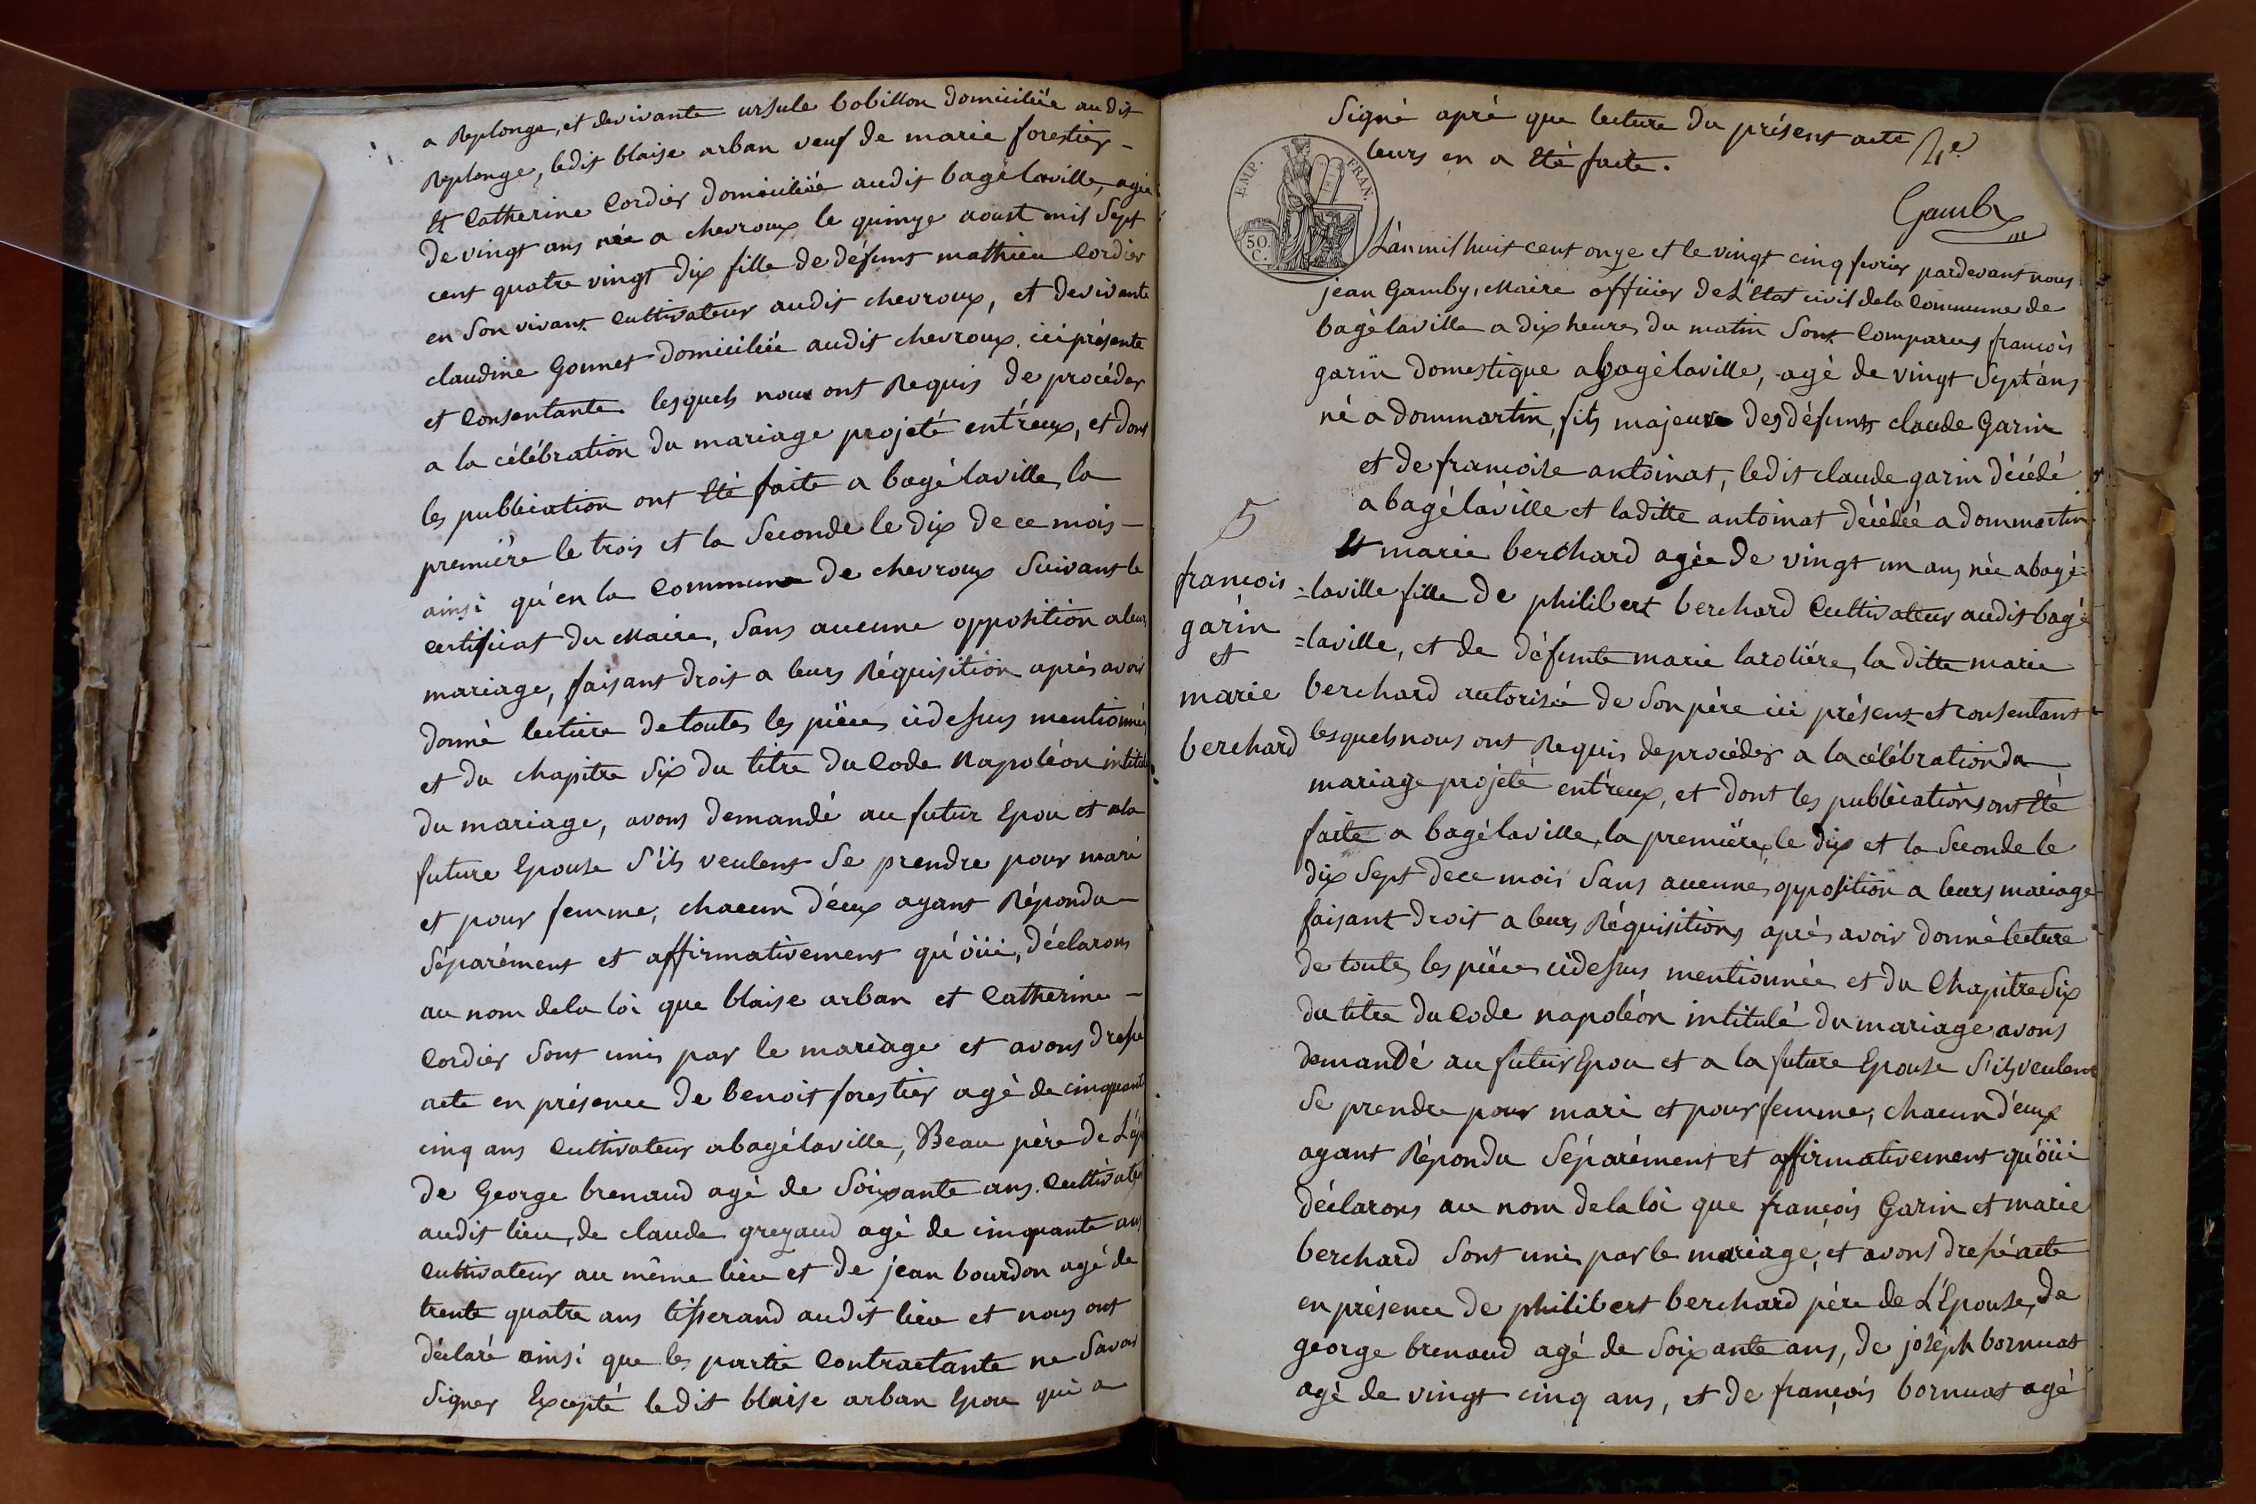 a Replonge, et devivante ursule bobillon domiciliée audit
Replonge, ledit blaise arban veuf de marie forestier -
Et Catherine Cordier domiciliée audit bagélaville, agée
de vingt ans née a chevroux le quinze aoust mil Sept
cent quatre vingt dix fille de défunt mathieu Cordier
en Son vivant Cultivateur audit chevroux, et devivante
claudine Gonnet domiciliée audit chevroux. ici présente
et Consentante lesquels nous ont Requis de procéder
a la célébration du mariage projeté entr'eux, et dont
les publication ont Eté faite a bagélaville, la
première le trois et la Seconde le dix de ce mois -
ainsi qu'en la Commune de chevroux Suivant le
certificat du Maire, Sans aucune opposition a leur
mariage, faisant droit a leurs Réquisition après avoir
donné lecture detoutes les pièces cidessus mentionnées
et du chapitre Six du titre du Code Napoléon intitulé
du mariage, avons demandé au futur Epou et ala
future Epouse S'ils veulent Se prendre pour mari
et pour femme, chacun d'eux ayant Répondu -
Séparément et affirmativement qu'oüi, déclarons
au nom dela loi que blaise arban et Catherine -
Cordier Sont unis par le mariage et avons dressé
acte en présence de benoit forestier agé de cinquant
cinq ans Cultivateur abagélaville, Beau père de L'ép
de George brenaud agé de Soixante ans. Cultivateur
audit lieu, de claude greyaud agé de cinquante ans
Cultivateur au même lieu et de jean bourdon agé de
trente quatre ans tisserand audit lieu et nous ont
déclaré ainsi que les partie Contractante ne Savoir
Signer Excepté ledit blaise arban Epou qui a
Signé apré que lecture du présent acte
leurs en a Eté faite.
Gamby
EMP. FRAN.
50 C.
L'an mil huit cent onze et le vingt cinq fevrier pardevant nous
jean Gamby, Maire officier de L'Etat civil dela Commune de
bagélaville a dix heures du matin Sont Comparus françois
garin domestique abagélaville, agé de vingt Sept ans
né a dommartin, fils majeur des défunts claude Garin
et de francoise antoinat, ledit claude garin décédé
a bagélaville et laditte antoinat décédée a dommartin
Et marie berchard agée de vingt un ans née abagé
=laville fille de philibert berchard Cultivateur audit bagé
=laville, et de défunte marie laroliére, la ditte marie
berchard autorisée de Son père ici présent et consentant
lesquels nous ont Requis deprocéder a la célébration du
mariage projeté entr'eux, et dont les publications ont Eté
faite a bagélaville, la première le dix et la Seconde le
dix Sept dece mois Sans aucune opposition a leurs mariage
faisant droit a leurs Réquisitions après avoir donné lecture
de toutes les pièces cidessus mentionnée et du Chapitre Six
du titre du Code napoléon intitulé du mariage avons
demandé au futur Epou et a la future Epouse S'ils veulent
Se prendre pour mari et pour femme, chacun d'eux
ayant Répondu Séparément et affirmativement qu'oüi
déclarons au nom dela loi que françois Garin et marie
berchard Sont unis par le mariage, et avons dressé acte
en présence de philibert berchard père de L'Epouse, de
george brenaud agé de Soixante ans, de joséph bornuat
agé de vingt cinq ans, et de françois bornuat agé
5
françois
garin
et
marie
berchard